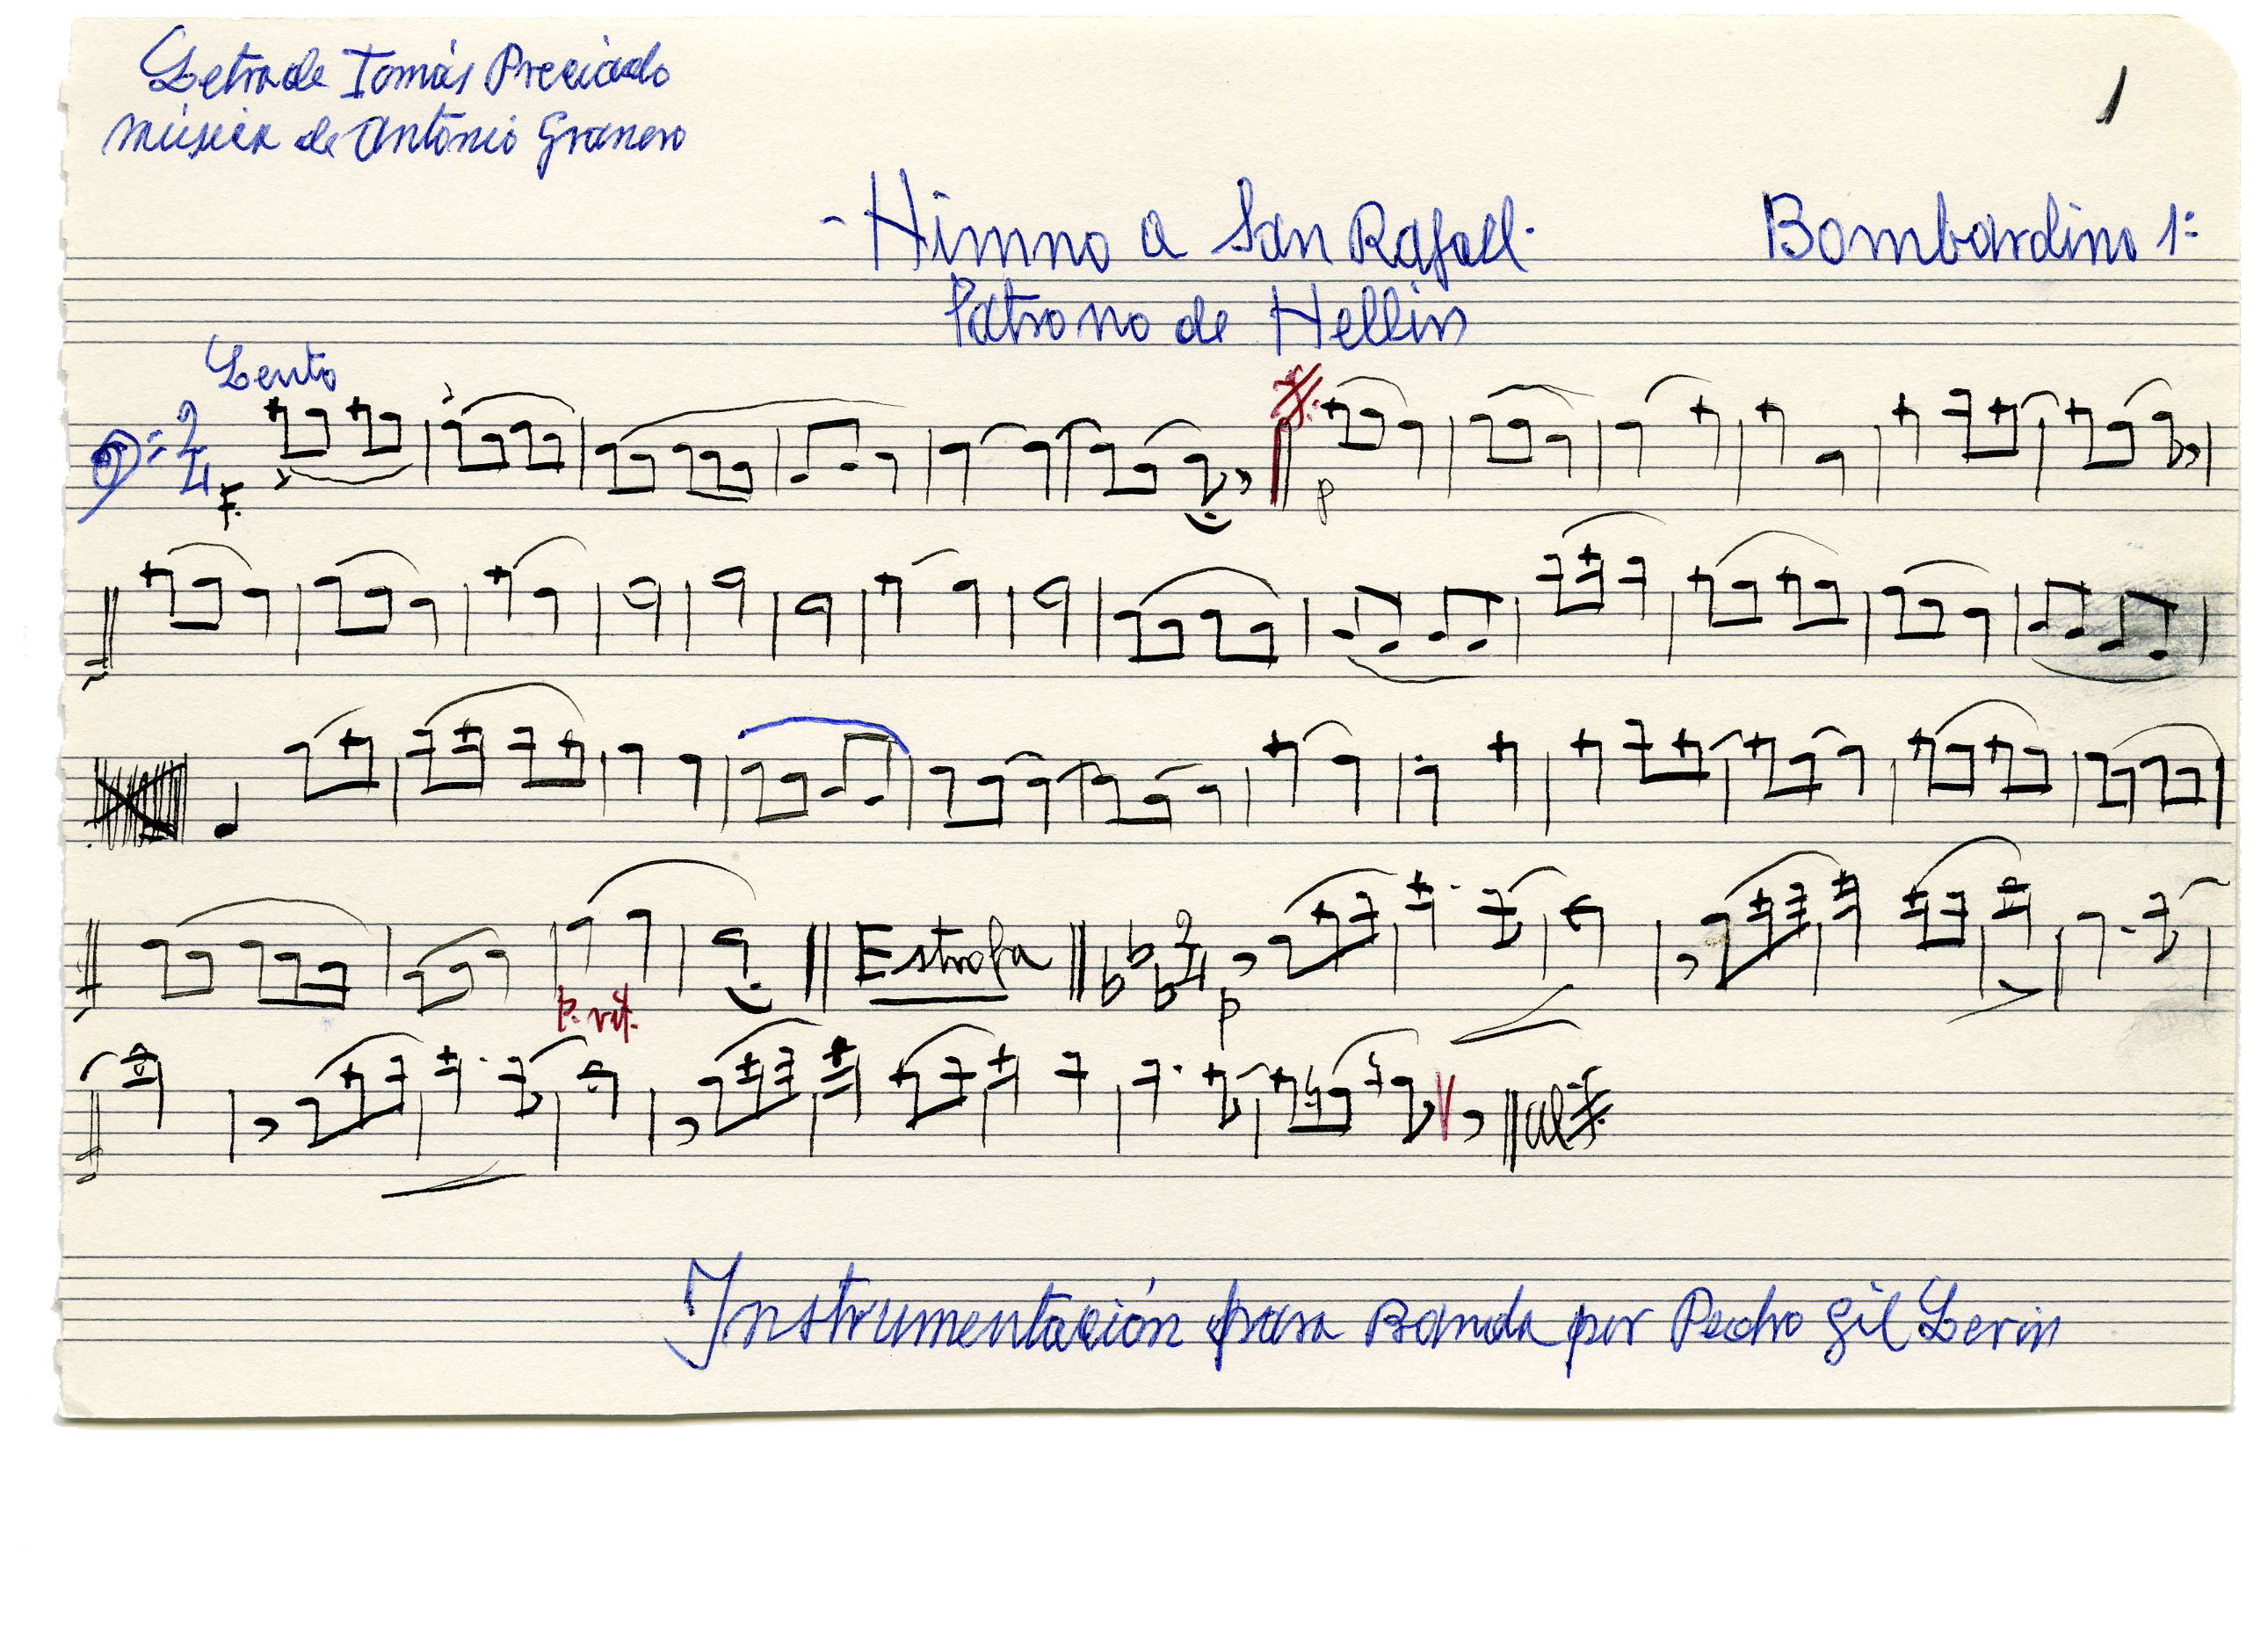 Letra de Tomás Preciado
Música de Antonio Granero
1
- Himno a San Rafael -
Bombardino 1º
Patrono de Hellin
Lento
F.
p
P. rit.
Estrofa
p
al
Instrumentación para Banda por Pedro Gil Lerin